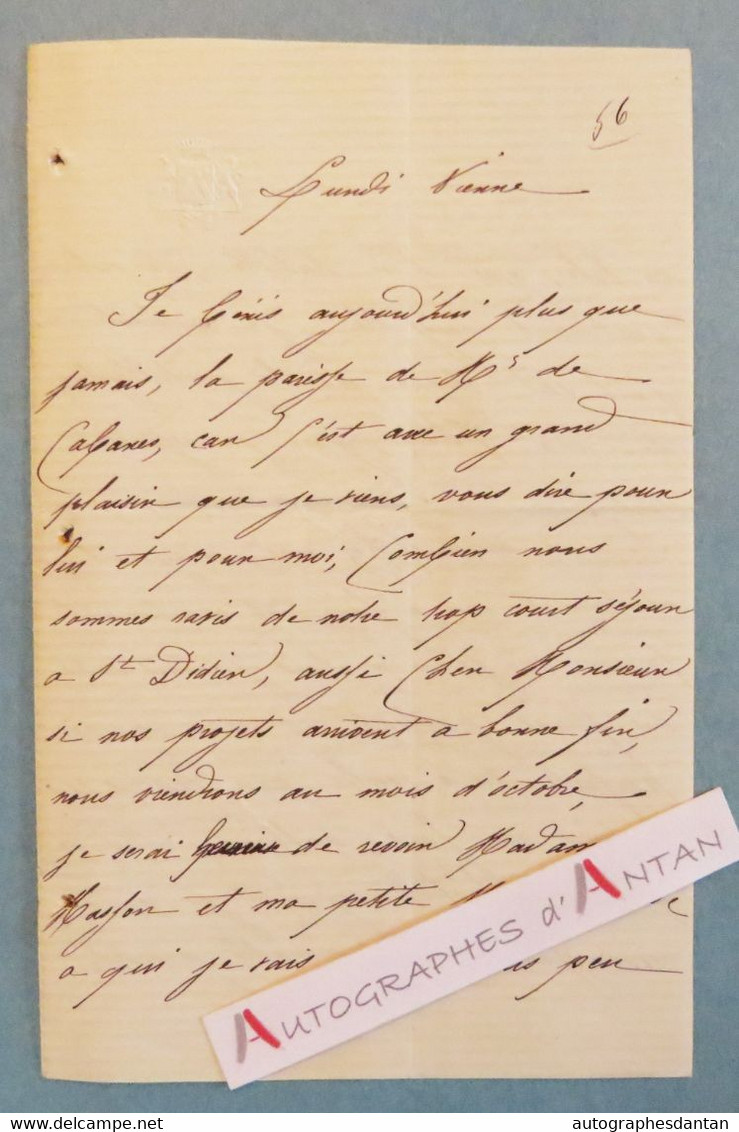 56
Lundi Vienne
Je bénis aujourd'hui plus que
jamais, la paresse de Mr de
Cabanes, car c'est avec un grand
plaisir que je viens, vous dire pour
lui et pour moi, Combien nous
sommes ravis de notre trop court séjour
a St Didier, aussi Cher Monsieur
si nos projets arrivent a bonne fin,
nous viendrons au mois d'octobre,
je serai de revoir Madam
Masson et ma petite
a qui je vais peu
AUTOGRAPHES d'ANTAN
delcampe.net
autographesdantan